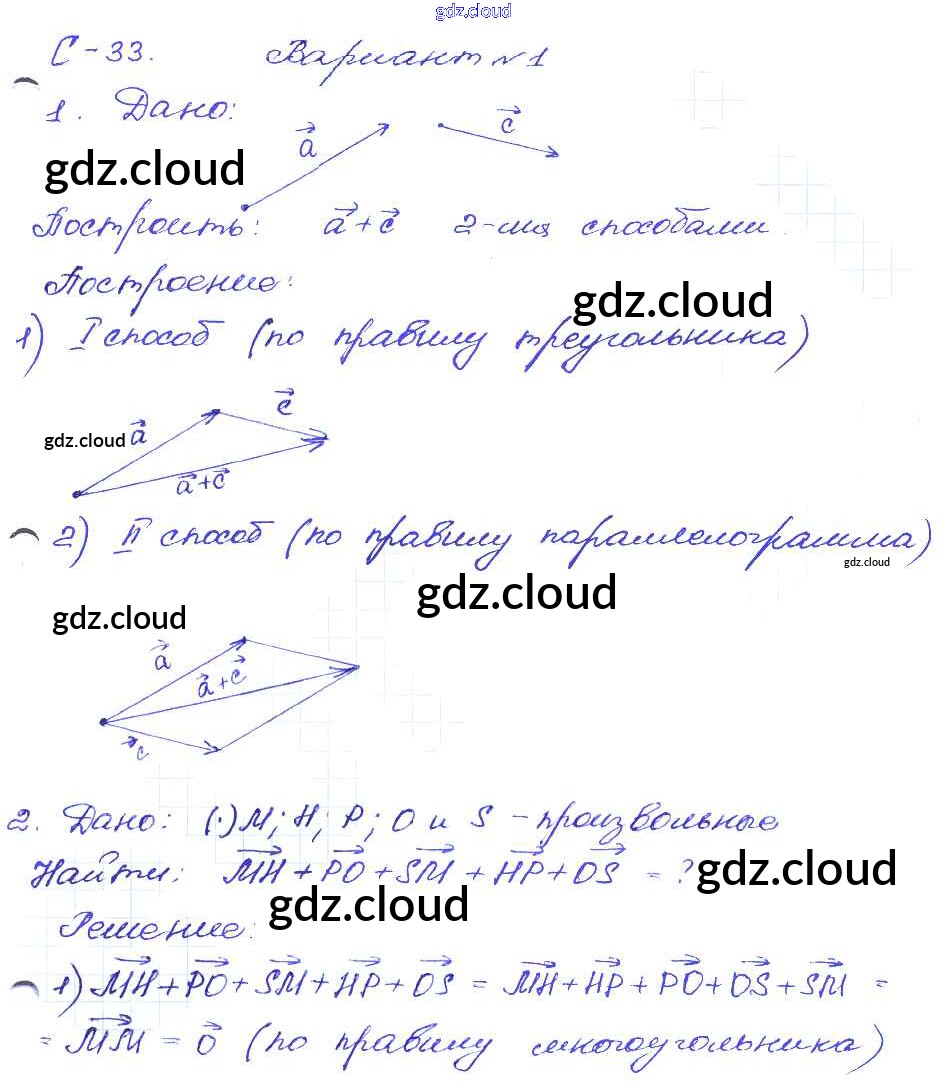 gdz.cloud
С-33. Вариант №1
1. Дано:
a c
gdz.cloud
Построить: a+c 2-мя способами.
Построение:
gdz.cloud
1) I способ (по правилу треугольника)
c
gdz.cloud a
a+c
2) II способ (по правилу параллелограмма)
gdz.cloud
gdz.cloud
gdz.cloud
a
a+c
c
2. Дано: (·) M; H; P; O и S - произвольные
Найти: MH + PO + SM + HP + OS = ?
gdz.cloud
gdz.cloud
Решение:
1) MH + PO + SM + HP + OS = MH + HP + PO + OS + SM =
= MM = 0 (по правилу многоугольника)